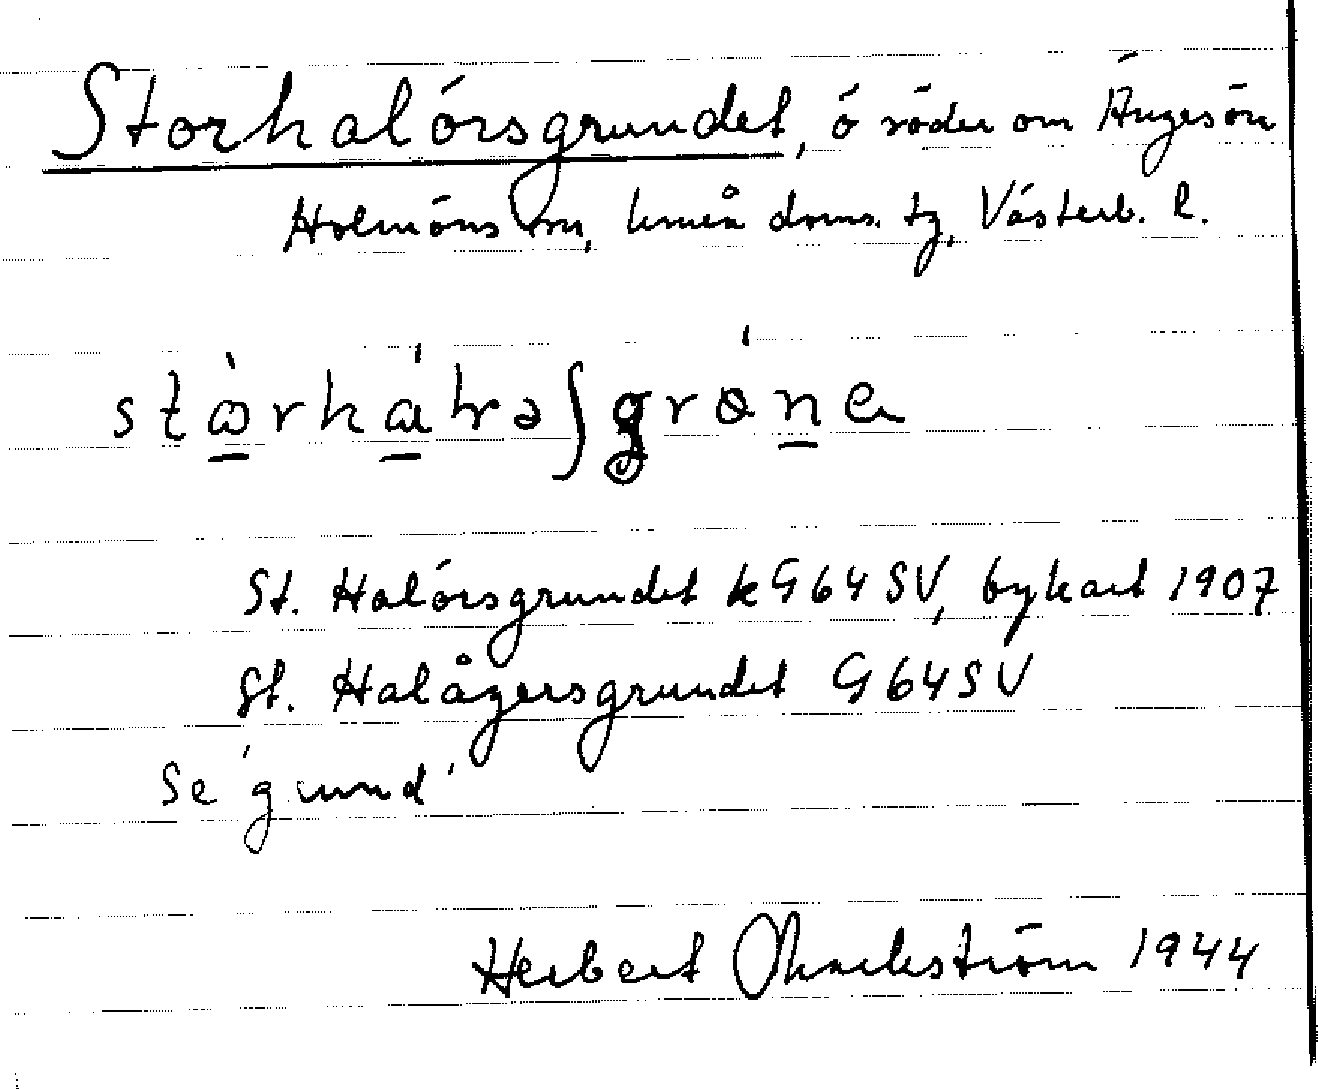 Storhalörsgrundet, ö söder om Ängesön
Holmöns sn, Umeå doms. tg, Västerb. l.
St. Halörsgrundet kG64SV, bykart 1907
St. Halågersgrundet G64SV
Se 'grund'
Herbert 1944